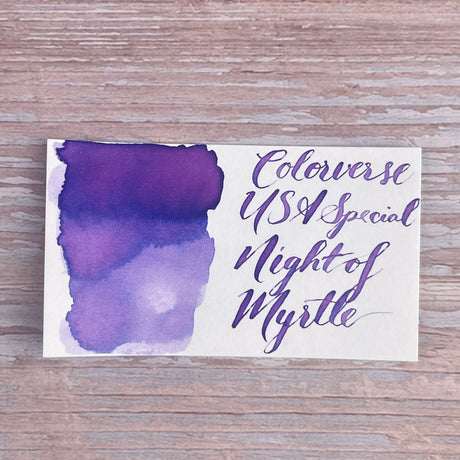 Colorverse
USA Special
Night of
Myrtle